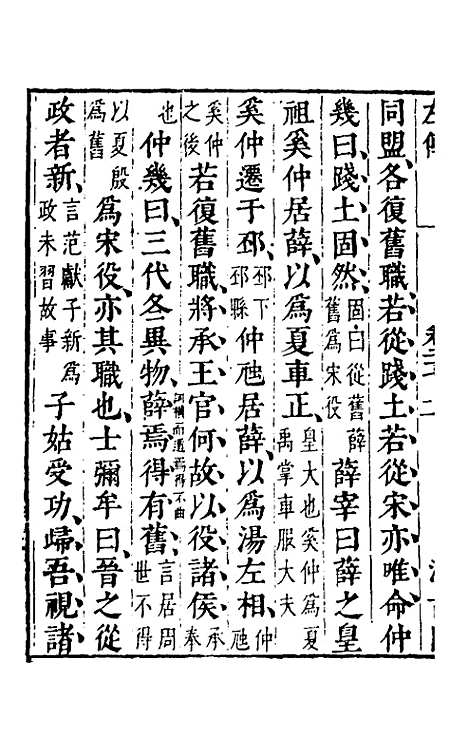 左傳
同盟各復舊職若從踐土若從宋亦唯命仲
幾曰踐土固然固曰從舊薛舊爲宋役薛宰曰薛之皇
祖奚仲居薛以爲夏車正皇大也奚仲爲夏禹掌車服大夫
奚仲遷于邳邳下邳縣仲虺居薛以爲湯左相仲虺
奚仲之後若復舊職將承王官何故以役諸侯承奉
也仲幾曰三代各異物薛焉得有舊言居周世不得
詞橫而遁焉得不曲
以夏殷爲舊爲宋役亦其職也士彌牟曰晉之從
政者新言范獻子新爲政未習故事子姑受功歸吾視諸